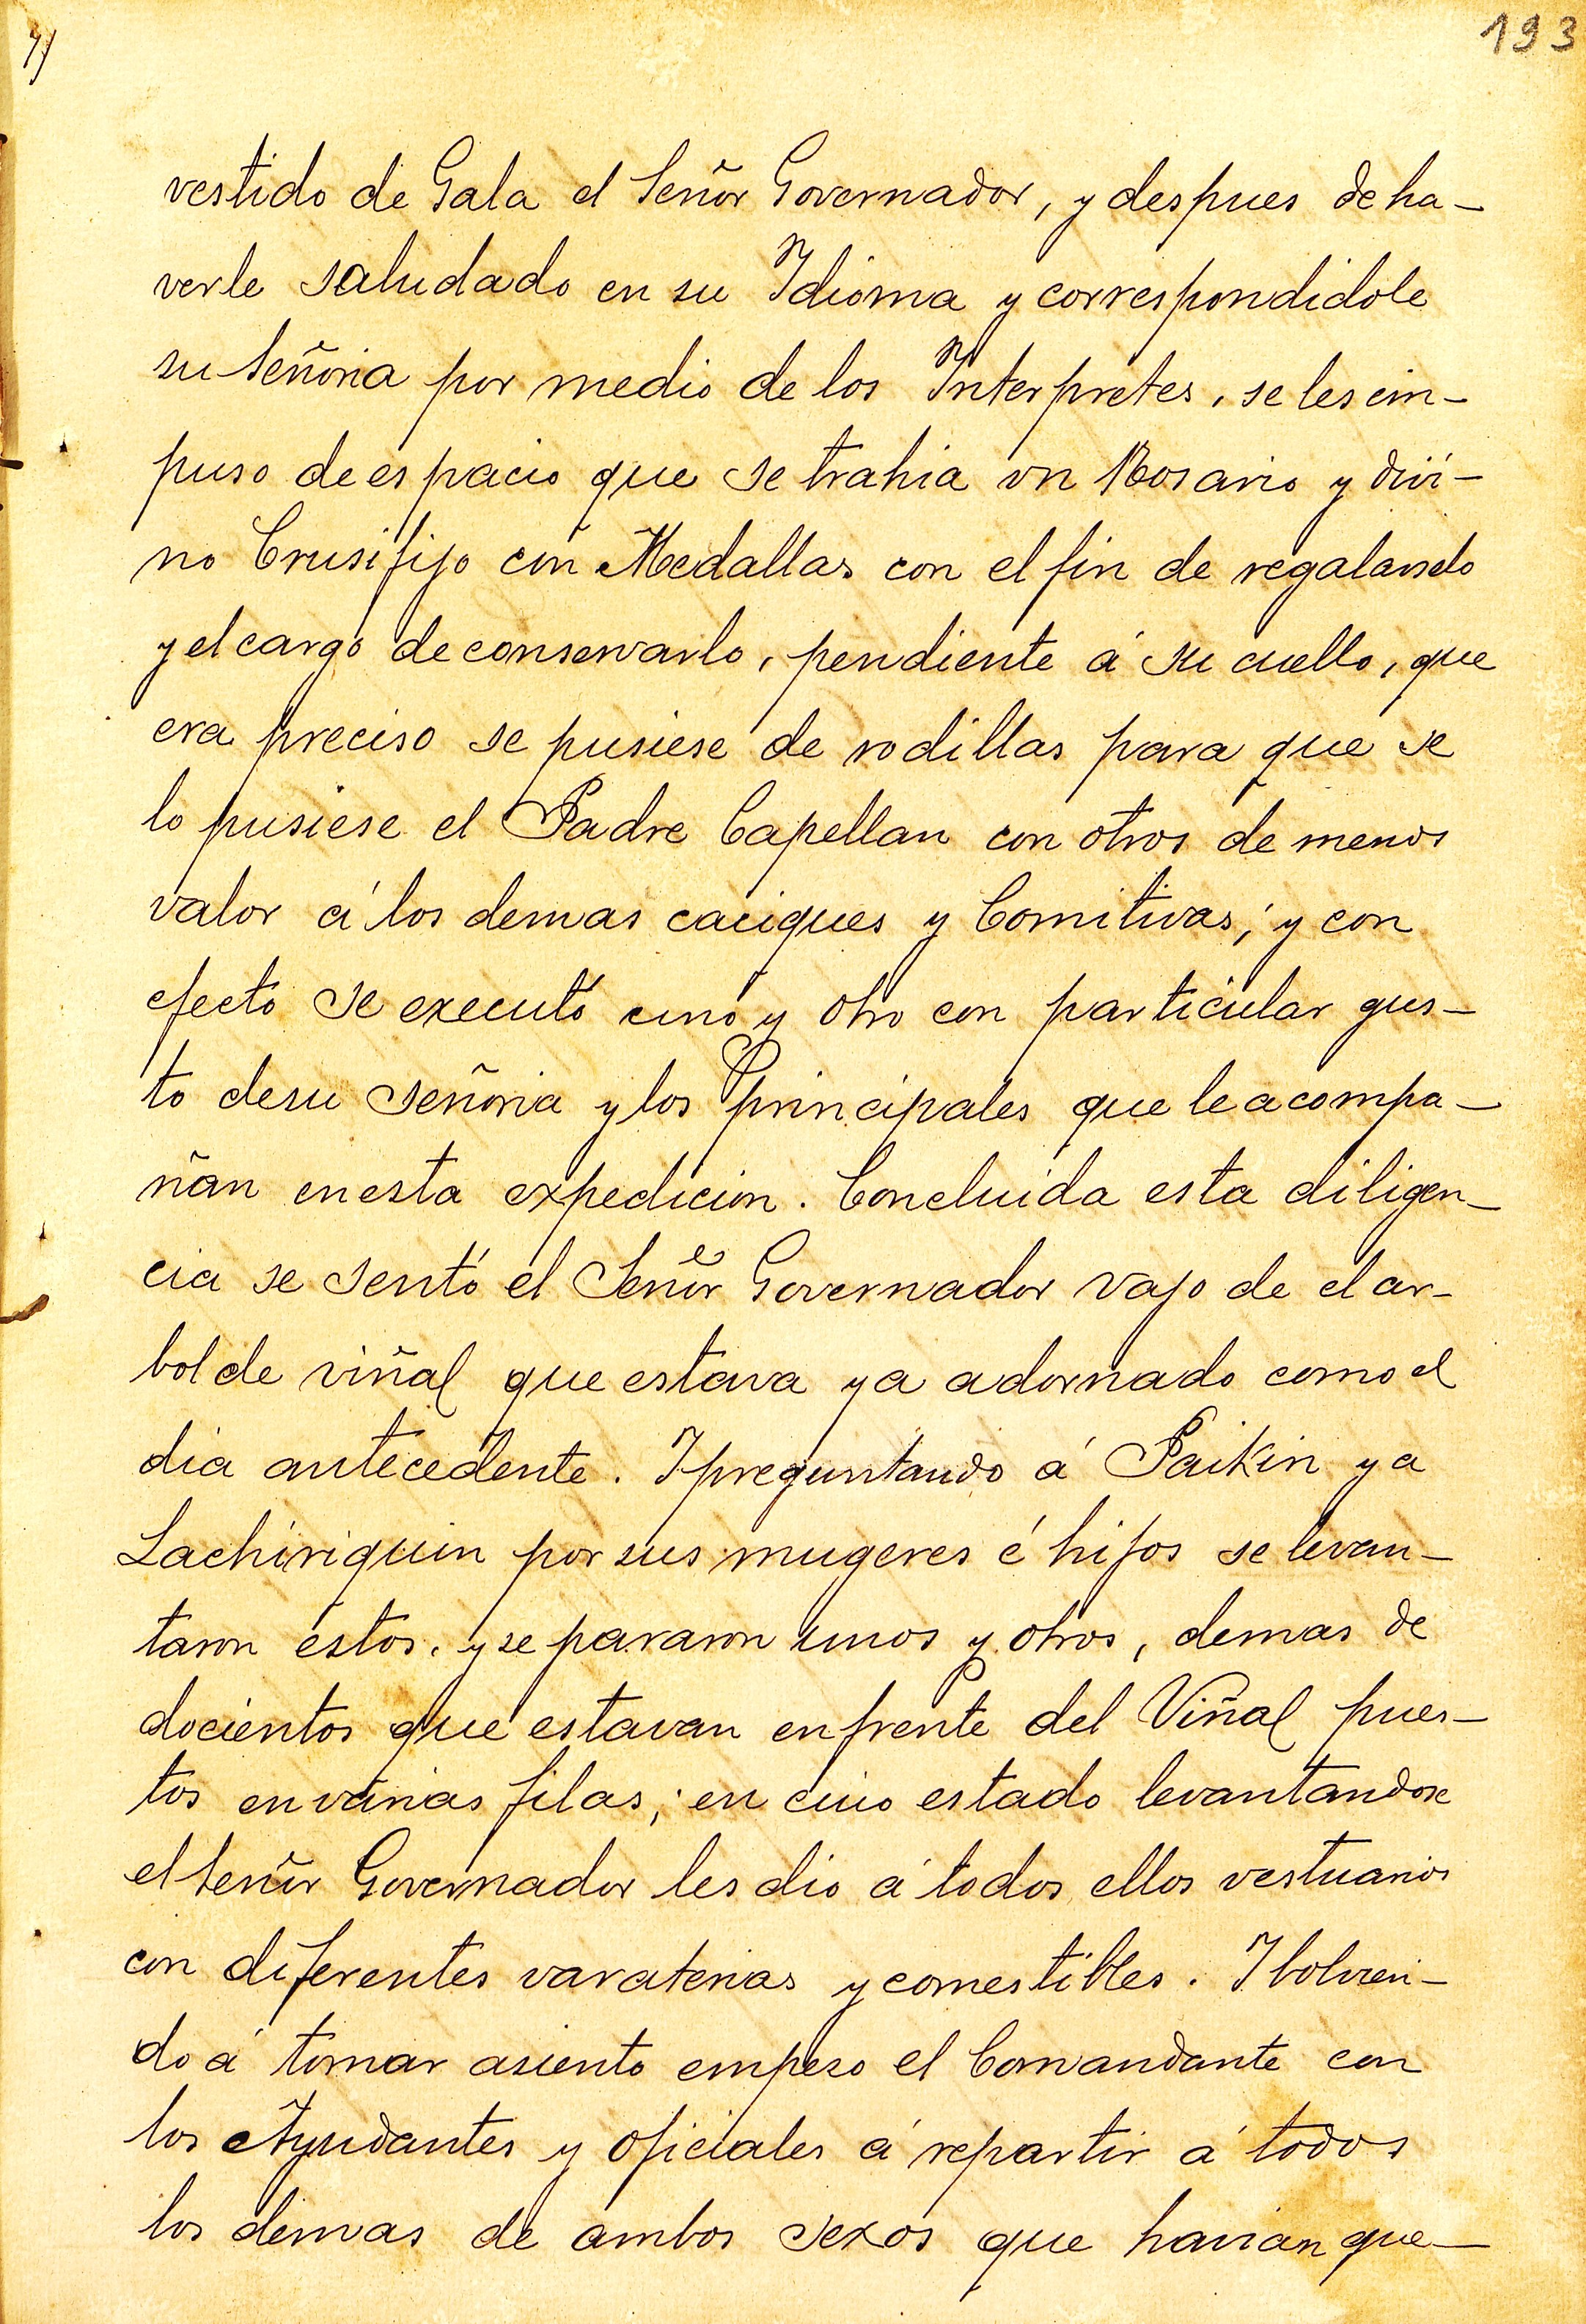 193
vestido de Gala el Señor Governador, y despues de ha-
verle saludado en su Idioma y correspondidole
su Señoria por medio de los Interpretes, se les im-
puso de espacio que se trahia un Rosario y divi-
no Crusifijo con Medallas con el fin de regalarselo
y el cargo de conservarlo, pendiente á su cuello, que
era preciso se pusiese de rodillas para que se
lo pusiese el Padre Capellan con otros de menos
valor á los demas caciques y Comitivas; y con
efecto se executó uno y otro con particular gus-
to de su Señoria y los Principales que le acompa-
ñan en esta expedicion. Concluida esta diligen-
cia se sentó el Señor Governador vajo de el ar-
bol de viñal que estava ya adornado como el
dia antecedente. I preguntando á Paikin y a
Lachiriquin por sus mugeres é hijos se levan-
taron estos, y se pararon unos y otros, demas de
docientos que estavan enfrente del Viñal pues-
tos en varias filas; en cuio estado levantandose
el Señor Governador les dio á todos ellos vestuarios
con diferentes varaterias y comestibles. I bolvien-
do á tomar asiento empeso el Comandante con
los Ayudantes y oficiales á repartir á todos
los demas de ambos sexos que havian que-